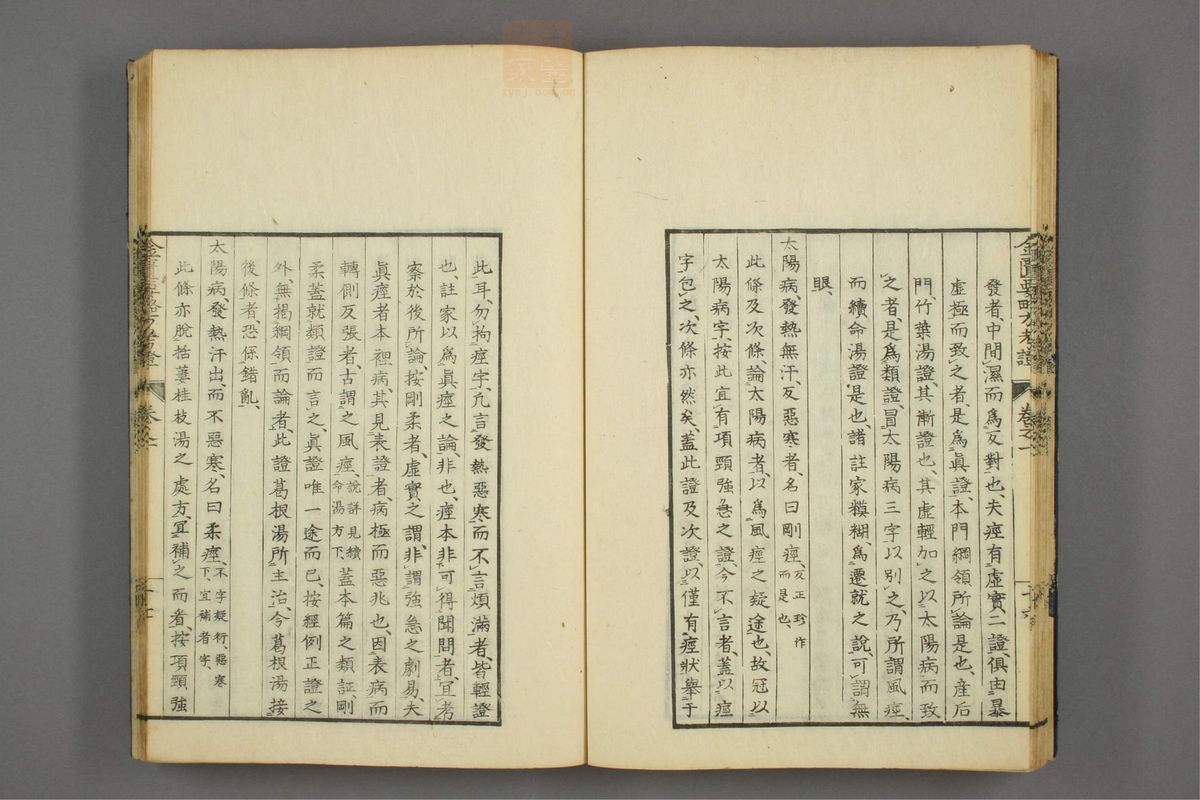 發者、中間濕而爲反對也、夫痙有虛實二證、俱由暴
虛極而致之者、是爲眞證、本門綱領所論是也、産后
門、竹葉湯證、其漸證也、其虛輕加之以太陽病而致
之者、是爲類證、冒太陽病三字以別之、乃所謂風痙、
而續命湯證是也、諸註家糢糊、爲遷就之說、可謂無
眼、
太陽病、發熱無汗、反惡寒者、名曰剛痙、反正珍作而是也、
此條及次條、論太陽病者、以爲風痙之疑途也、故冠以
太陽病字、按此宜有項頸強急之證、今不言者、蓋以痙
字包之、次條亦然矣、蓋此證及次證、以僅有痙狀舉于
此耳、勿拘痙字、凡言發熱惡寒而不言煩滿者、皆輕證
也、註家以爲眞痙之論、非也、痙本非可得聞問者、宜考
察於後所論、按剛柔者、虛實之謂、非謂強急之劇易、夫
眞痙者本裡病、其見表證者、病極而惡兆也、因表病而
轉側反張者、古謂之風痙、說詳見續命湯方下、蓋本篇之類証、剛
柔蓋就類證而言之、眞證唯一途而已、按經例正證之
外無揭綱領而論者、此證葛根湯所主治、今葛根湯接
後條者、恐係錯亂、
太陽病、發熱汗出、而不惡寒、名曰柔痙、不字疑衍、惡寒下、宜補者字、
此條亦脫栝蔞桂枝湯之處方、宜補之而看、按項頸強
金匱要略方考證
卷之一